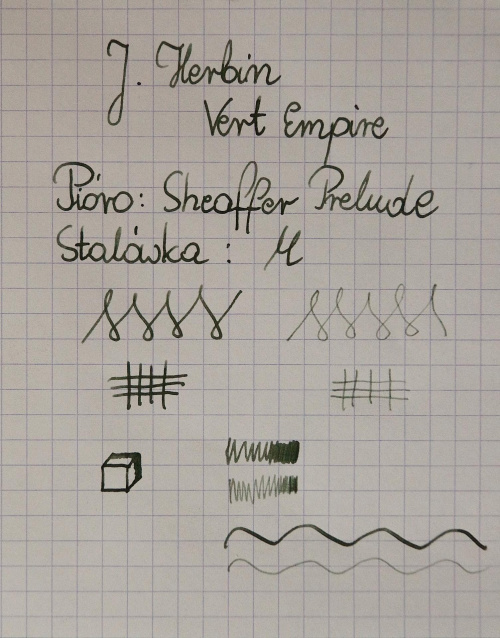 J. Herbin
Vert Empire
Pióro: Sheaffer Prelude
Stalówka: M